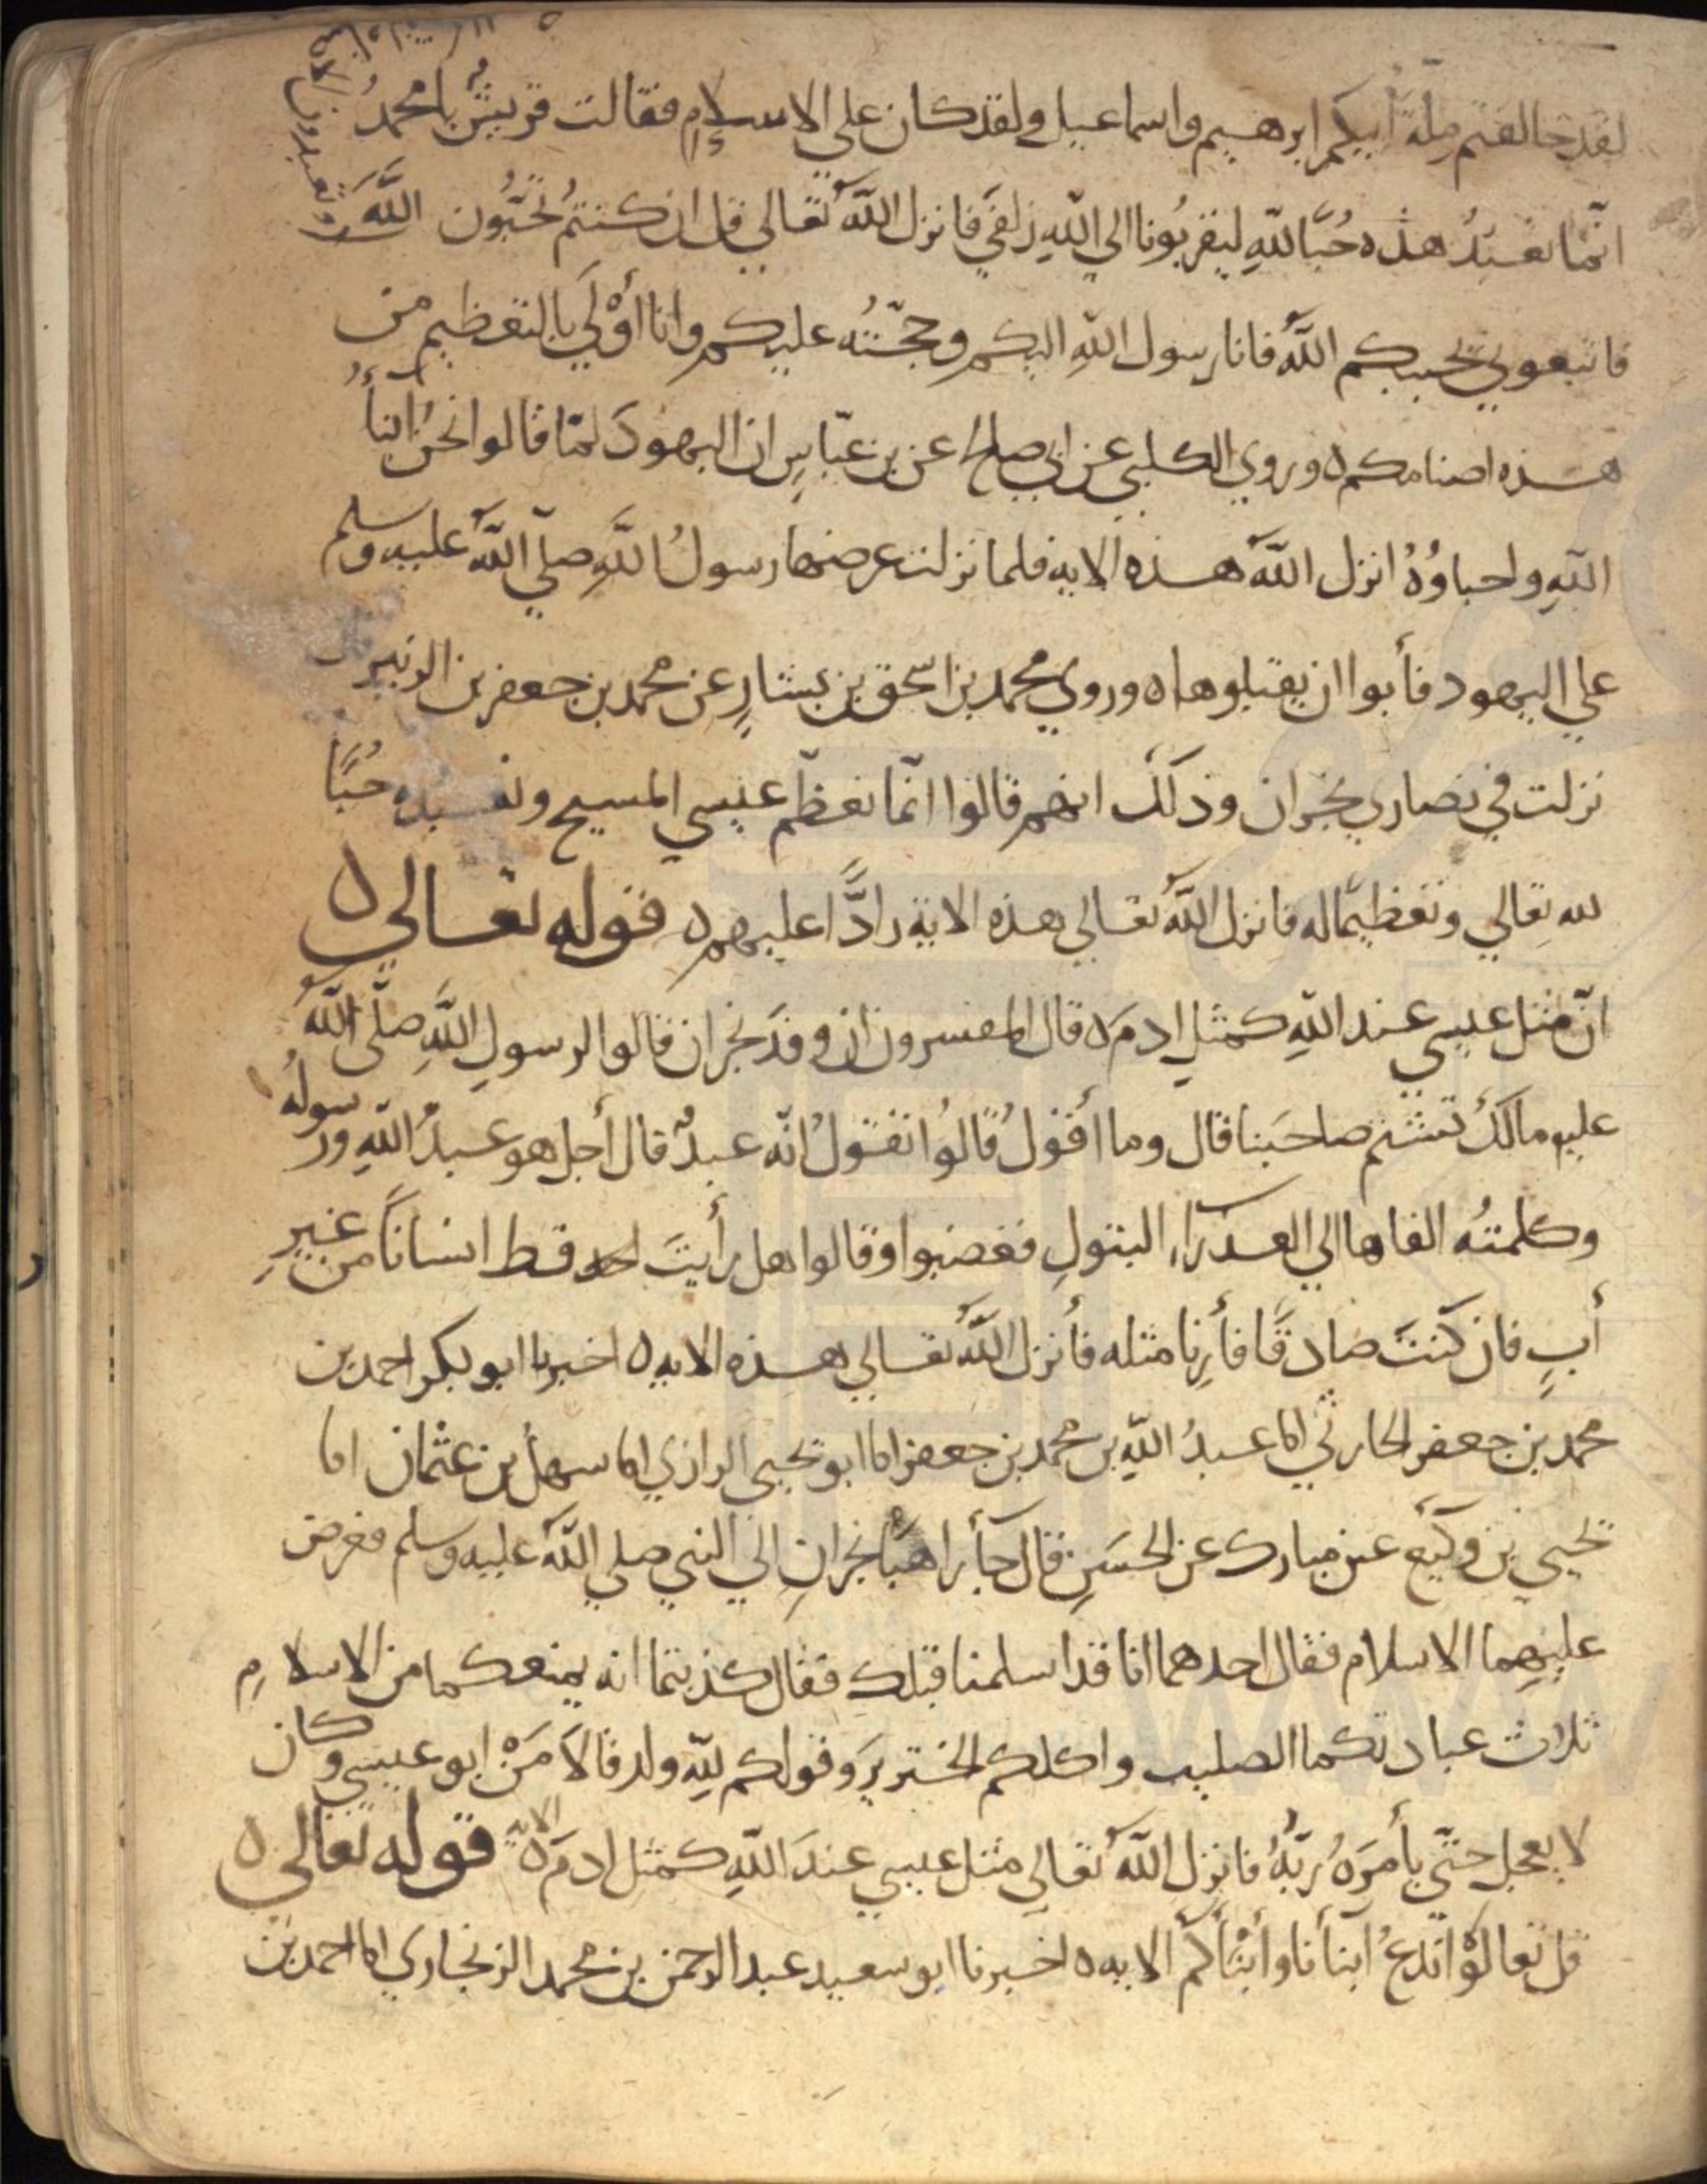 لقد خالفتم ملة أبيكم ابرهيم واسماعيل ولقد كان علي الاسلام فقالت قريش يا محمد
انما نعبد هذه حبا لله ليقربونا الي الله زلفي فانزل الله تعالي قل ان كنتم تحبون الله
فاتبعوني يحببكم الله فانا رسول الله اليكم وحجته عليكم وانا أولي بالتعظيم من
هذه اصنامكم ٥ وروي الكلبي عن ابي صالح عن بن عباس ان اليهود لما قالوا نحن ابنأ
الله واحباؤه انزل الله هذه الايه فلما نزلت عرضها رسول الله صلي الله عليه وسلم
علي اليهود فأبوا ان يقبلوها ٥ وروي محمد بن اسحق بن يسار عن محمد بن جعفر بن الزبير
نزلت في نصاري نجران وذلك انهم قالوا انما نعظم عيسي المسيح ونعبده حبا
لله تعالي وتعظيما له فانزل الله تعالي هذه الاية رادا عليهم ٥ قوله تعالي ٥
ان مثل عيسي عند الله كمثل ادم ٥ قال المفسرون ان وفد نجران قالوا لرسول الله صلي الله
عليه مالك تشتم صاحبنا قال وما أقول قالوا تقول انه عبد قال أجل هو عبد الله ورسوله
وكلمته القاها الي العذراء البتول فغضبوا وقالوا هل رأيت احد قط انسانا من غير
أب فان كنت صادقا فأرنا مثله فأنزل الله تعالي هذه الايه ٥ اخبرنا ابو بكر احمد بن
محمد بن جعفر الحارثي انا عبد الله بن محمد بن جعفر انا ابو يحيي الرازي انا سهل بن عثمان انا
يحيي بن وكيع عن مبارك عن الحسن قال جأ راهبا نجران الي النبي صلي الله عليه وسلم فعرض
عليهما الاسلام فقال احدهما انا قد اسلمنا قبلك فقال كذبتما انه يمنعكما من الاسلام
ثلاث عبادتكما الصليب واكلكم الخنزير وقولكم لله ولد قالا من ابو عيسي وكان
لا يعجل حتي يأمره ربه فانزل الله تعالي مثل عيسي عند الله كمثل ادم ٥ الاية قوله تعالي ٥
قل تعالوا ندع ابنأنا وأبنأكم الايه ٥ اخبرنا ابو سعيد عبد الرحمن بن محمد الزنجاري انا احمد بن